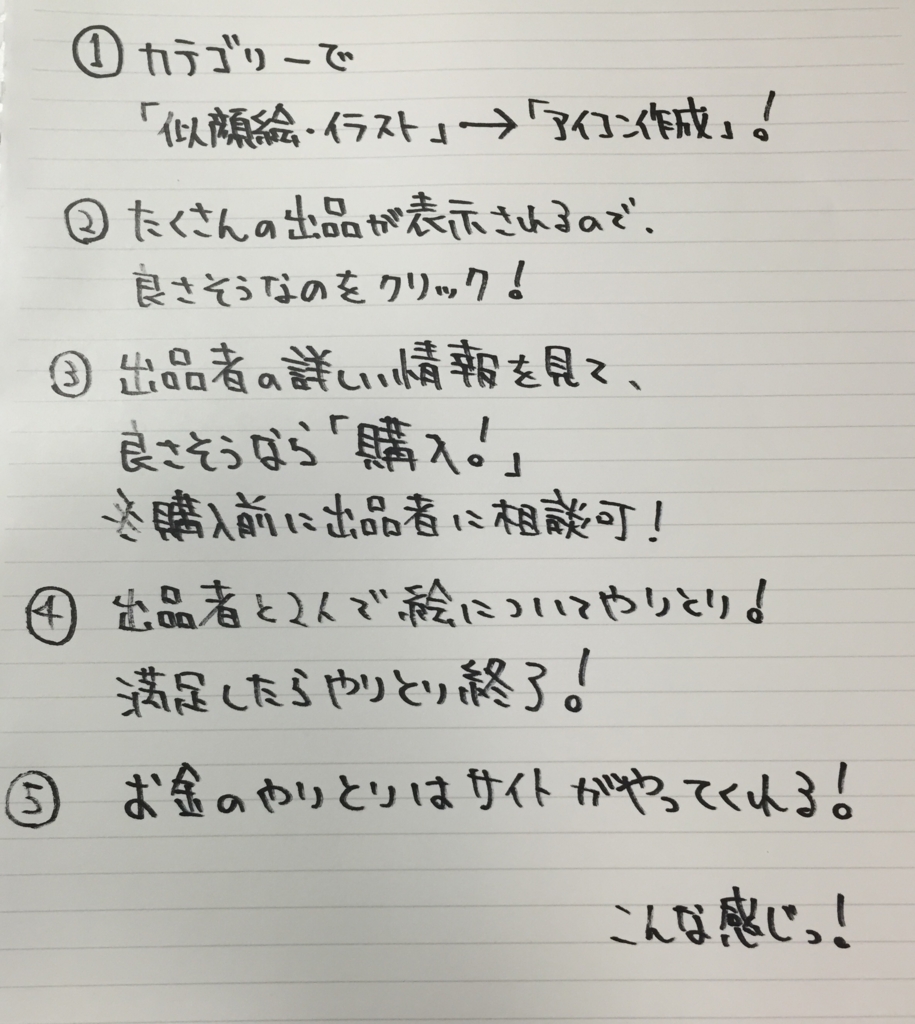 ① カテゴリーで
「似顔絵・イラスト」→「アイコン作成」!
② たくさんの出品が表示されるので、
良さそうなのをクリック!
③ 出品者の詳しい情報を見て、
良さそうなら「購入!」
※購入前に出品者に相談可!
④ 出品者と2人で絵についてやりとり!
満足したらやりとり終了!
⑤ お金のやりとりはサイトがやってくれる!
こんな感じっ!